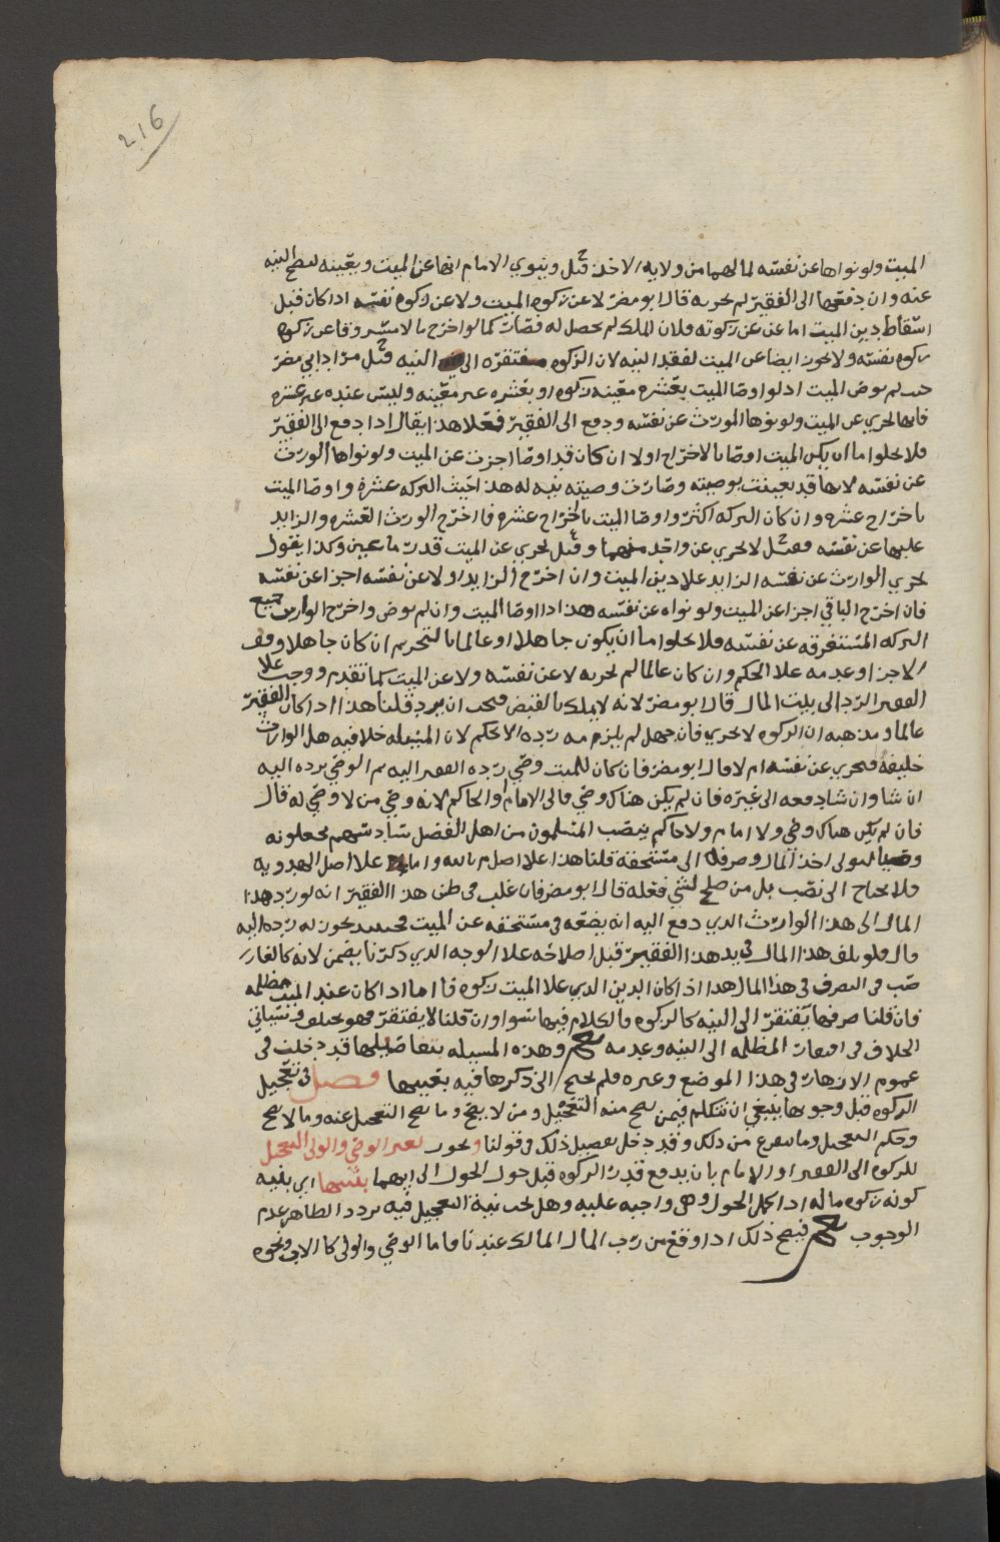 216
الميت ولو نواها عن نفسه لما لهما من ولاية الاخذ قيل وينوي الامام انها عن الميت وبعينه لتصح النيه
عنه وان دفعها الى الفقير لم يجزه قال ابو مضر لا عن زكوه الميت ولا عن زكوه نفسه اذا كان قبل
اسقاط دين الميت اما عن عن زكوته فلان الملك لم يحصل له فصارت كما لو اخرج مالا مستروقا عن زكوه
زكوه نفسه ولا يجوز ايضا عن الميت لفقد النيه لان الزكوه مفتقره الى النيه قيل مراد ابي مضر
حيث لم يوص الميت اذ لو اوصا الميت بعشره معينه زكوه او بعشره غير معينه وليس عنده غير عشره
فانها تجزي عن الميت ولو نوها المورث عن نفسه ودفع الى الفقير فعلا هذا يقال اذا دفع الى الفقير
فلا يخلوا اما ان يكن الميت اوصا بالاخراج اولا ان كان قد اوصا اجزت عن الميت ولو نواها الورث
عن نفسه لانها قد تعينت بوصيته وصارت وصيته نيه له هذا حيث التركه عشره واوصا الميت
باخراج عشره وان كان التركه اكثر واوصا الميت باخراج عشره فاخرج الورث العشره والزايد
عليها عن نفسه فقيل لا يجزي عن واحد منهما وقيل يجزي عن الميت قدر ما عين وكذا يقول
يجزي الوارث عن نفسه الزايد علا دين الميت وان اخرج الزايد اولا عن نفسه اجزا عن نفسه
فان اخرج الباقي اجزا عن الميت ولو نواه عن نفسه هذا اذا اوصا الميت وان لم يوص واخرج الوارث جميع
التركه المستغرقه عن نفسه فلا يخلوا اما ان يكون جاهلا او عالما بالتحريم ان كان جاهلا وقف
الاجزا وعدمه علا الحكم وان كان عالما لم يجزه لا عن نفسه ولا عن الميت كما تقدم ووجب علا
الفقير الرد الى بيت المال قال ابو مضر لانه لا يملك بالقبض فيجب ان يرد قلنا هذا اذا كان الفقير
عالما ومذهبه ان الزكوه لا تجزي فان جهل لم يلزمه رده الا بحكم لان المسله خلافيه هل الوارث
خليفة فيجزي عن نفسه ام لا قال ابو مضر فان كان للميت وصي رده الفقير اليه ثم الوصي يرده اليه
ان شا وان شا دفعه الى غيره فان لم يكن هناك وصي فالى الامام او الحاكم لانه وصي من لا وصي له قال
فان لم يكن هناك وصي ولا امام ولا حاكم ينصب المسلمون من اهل الفضل شاد سهم يجعلونه
وصيا ليولى اخذ المال وصرفه الى مستحقه قلنا هذا علا اصل م بالله واما علا اصل الهدويه
فلا يحتاج الى نصب بل من صلح لشي فعله قال ابو مضر فان غلب في ظن هذا الفقير انه لو رد هذا
المال الى هذا الوارث الذي دفع اليه انه يضعه في مستحقه عن الميت فحينيد يجوز له رده اليه
قال فلو تلف هذا المال في يد هذا الفقير قبل اصلاحه علا الوجه الذي ذكرنا يضمن لانه كالغار
صب في التصرف في هذا المال هذا اذا كان الدين الذي علا الميت زكوه فاما اذا كان عند الميت مظلمه
فان قلنا صرفها يفتقر الى النيه كالزكوه فالكلام فيها سوا وان قلنا لا يفتقر فهو يختلف وسياتي
الخلاف في افتقار المظلمه الى النيه وعدمه وهذه المسيله بتفاصيلها قد دخلت في
عموم الازهار في هذا الموضع وغيره فلم نحتج الى ذكرها فيه بعينها فصل في تعجيل
الزكوه قبل وجوبها ينبغي ان نتكلم فيمن يصح منه التعجيل ومن لا يصح وما يصح التعجيل عنه وما لا يصح
وحكم التعجيل وما يتفرع من ذلك وقد دخل تفصيل ذلك في قولنا ويجوز لغير الوصي والولي التعجيل
للزكوه الى الفقير او الامام بان يدفع قدر الزكوه قبل حول الحول الى ايهما بنيتها اي بنية
كونه زكوه ماله اذا كمل الحول وهي واجبه عليه وهل تجب نية التعجيل فيه تردد الظاهر عدم
الوجوب فيصح ذلك اذا وقع من رب المال المالك عندنا فاما الوصي والولي كالاب ونحوه